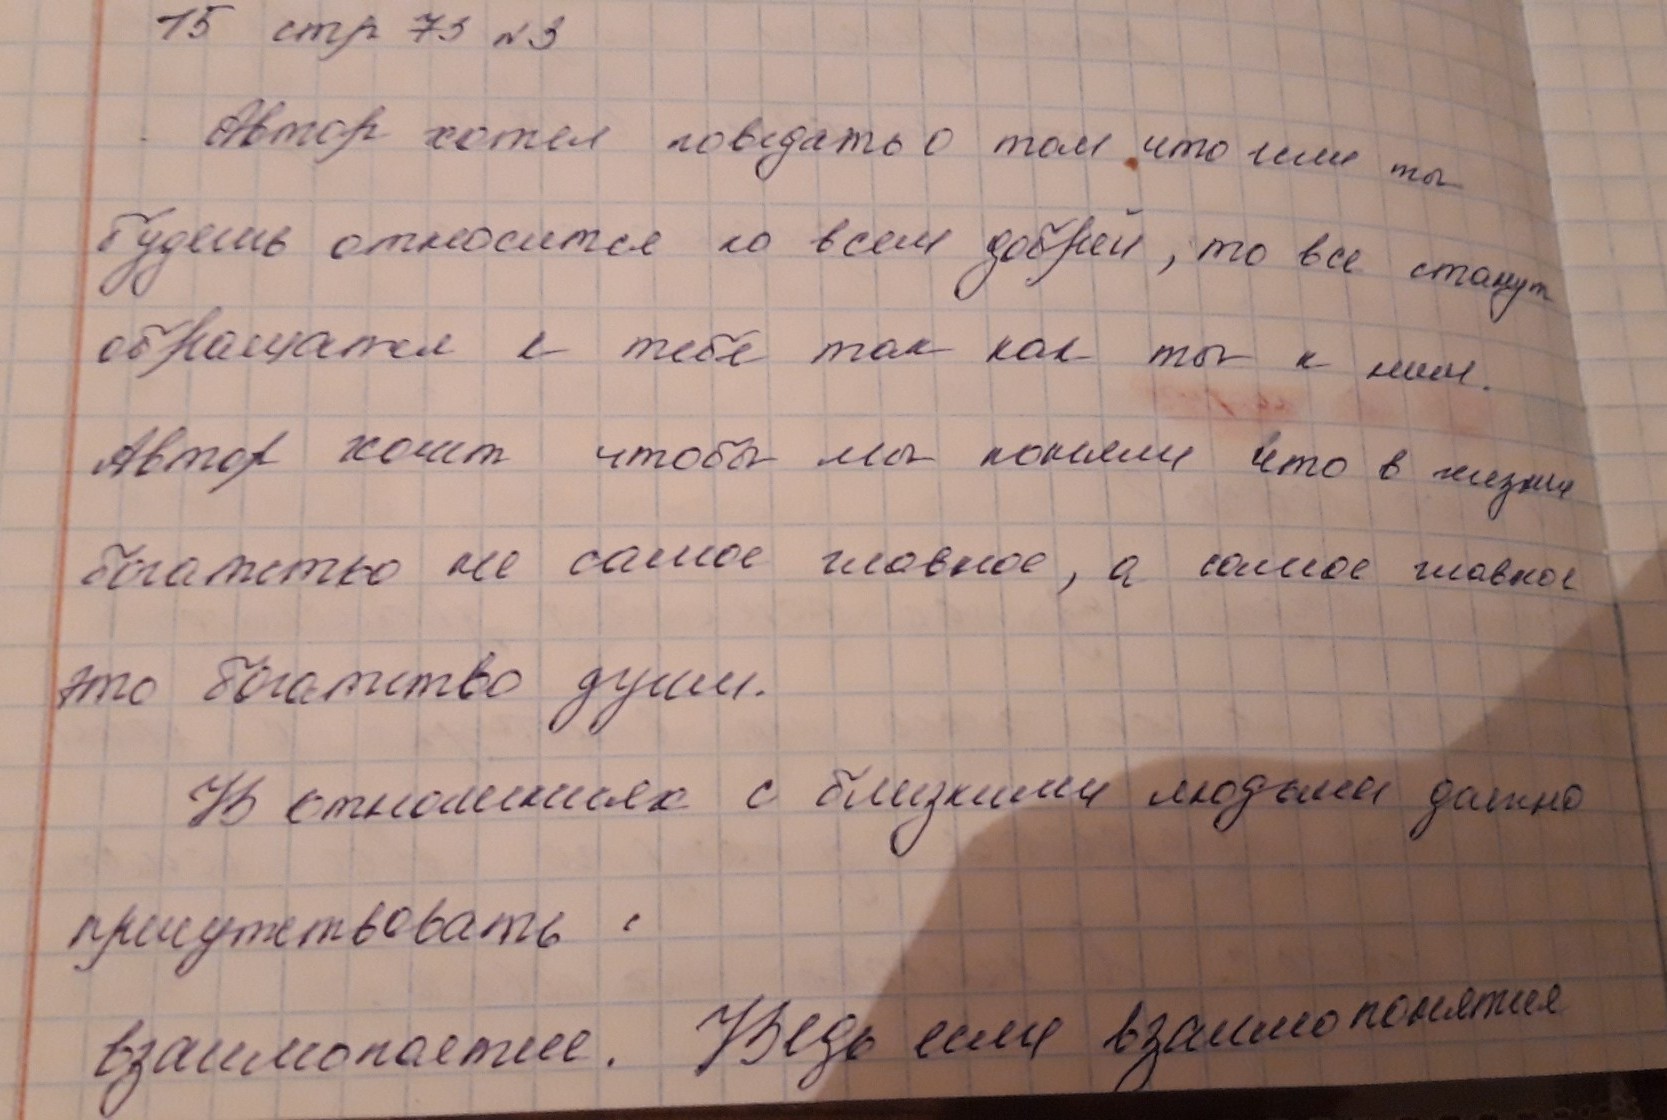 15 стр 73 №3
Автор хотел поведать о том что если ты
будешь относится ко всем добрей, то все станут
обращатся к тебе так как ты к ним.
Автор хочет чтобы мы поняли что в жизни
богатство не самое главное, а самое главное
это богатство души.
В отношениях с близкими людьми должно
присутствовать :
взаимопоятие. Ведь если взаимопонятия